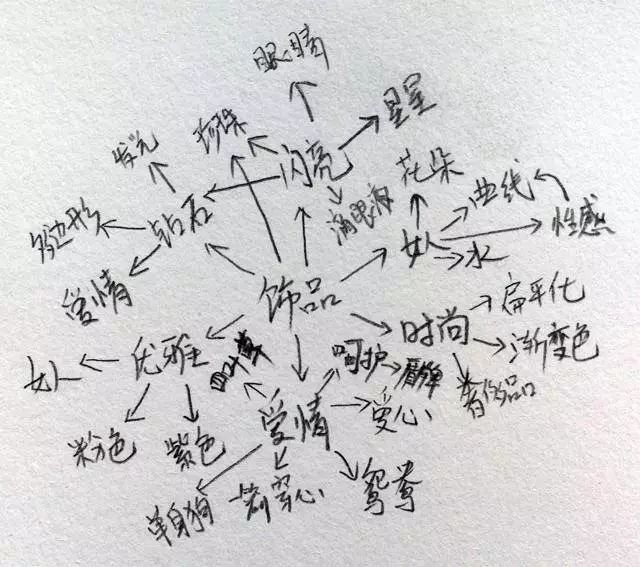 眼睛
星星
发光
珍珠
闪亮
花朵
曲线
性感
多边形
钻石
滴眼液
女人
水
爱情
饰品
扁平化
时尚
渐变色
女人
优雅
四叶草
呵护
爱心
奢饰品
粉色
紫色
爱情
单身狗
箭穿心
鸳鸯